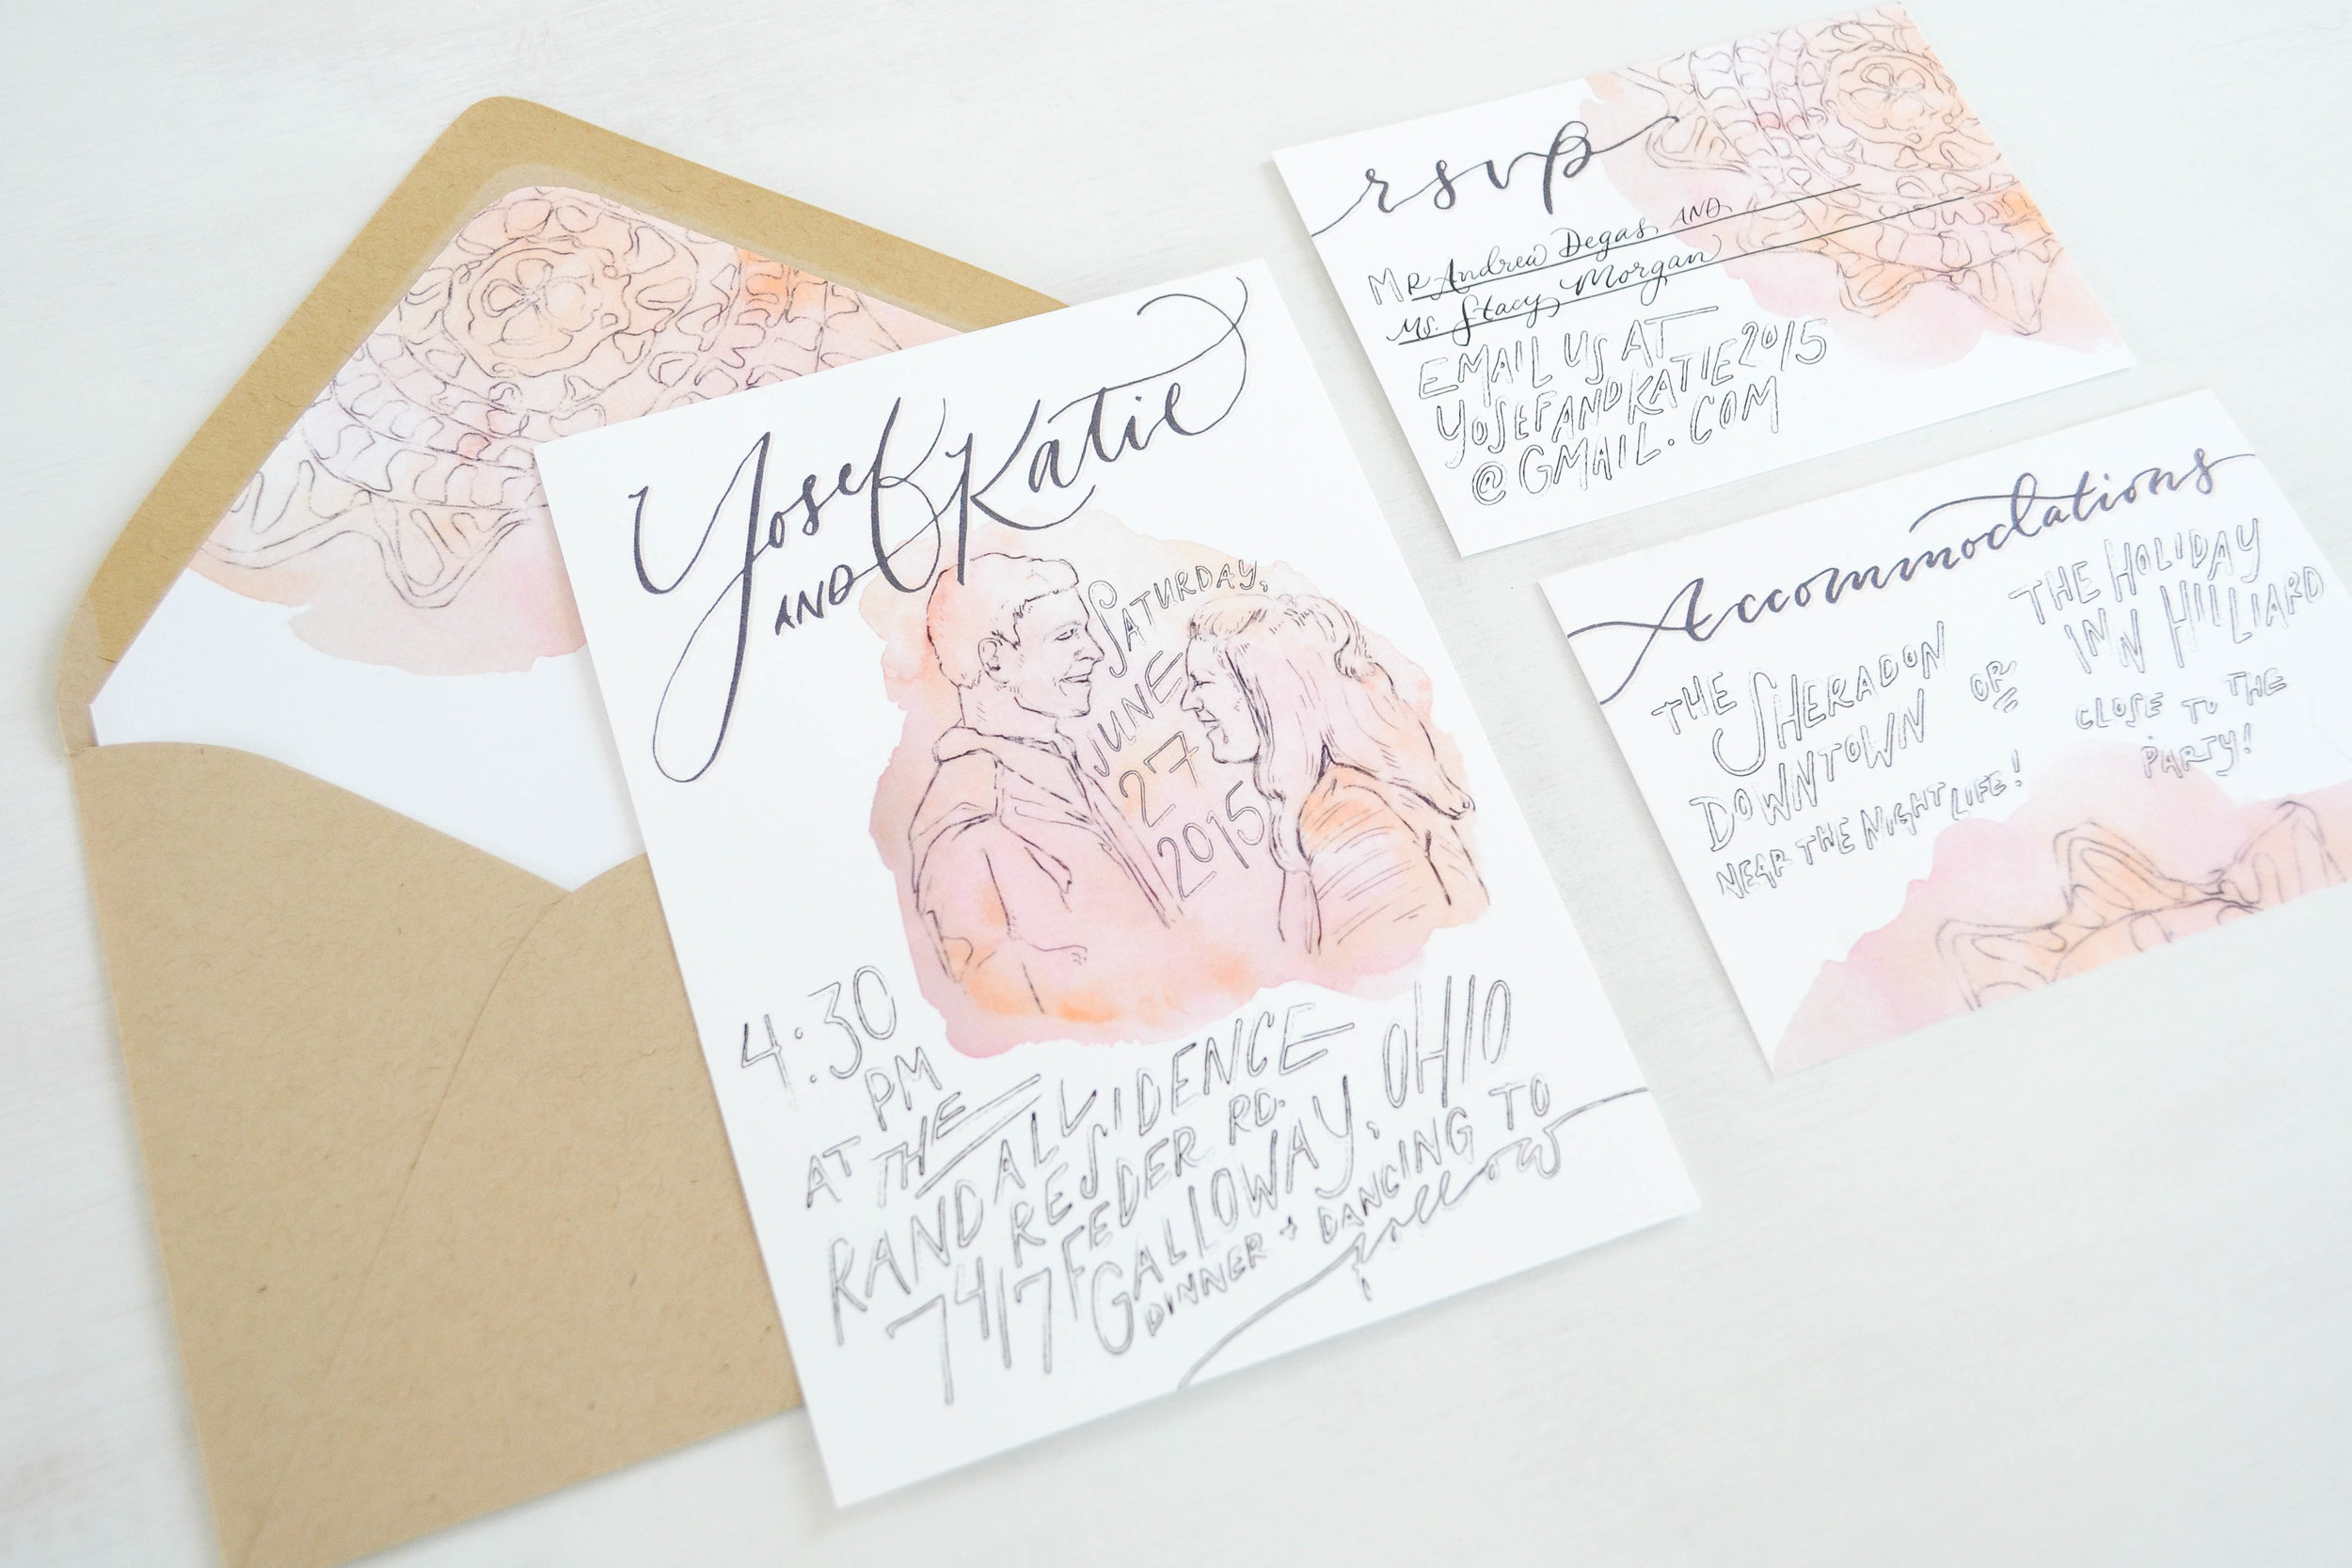 Yosef
AND Katie
SATURDAY,
JUNE
27
2015
4:30
PM
AT THE
RANDALL
RESIDENCE
7417 FEDER RD.
GALLOWAY, OHIO
DINNER + DANCING TO
follow
rsvp
MR Andrew Degas AND
Ms. Stacy Morgan
EMAIL US AT
YOSEFANDKATIE2015
@GMAIL.COM
Accommodations
THE SHERADON
DOWNTOWN
NEAR THE NIGHT LIFE!
OR
THE HOLIDAY
INN HILLIARD
CLOSE TO THE
PARTY!